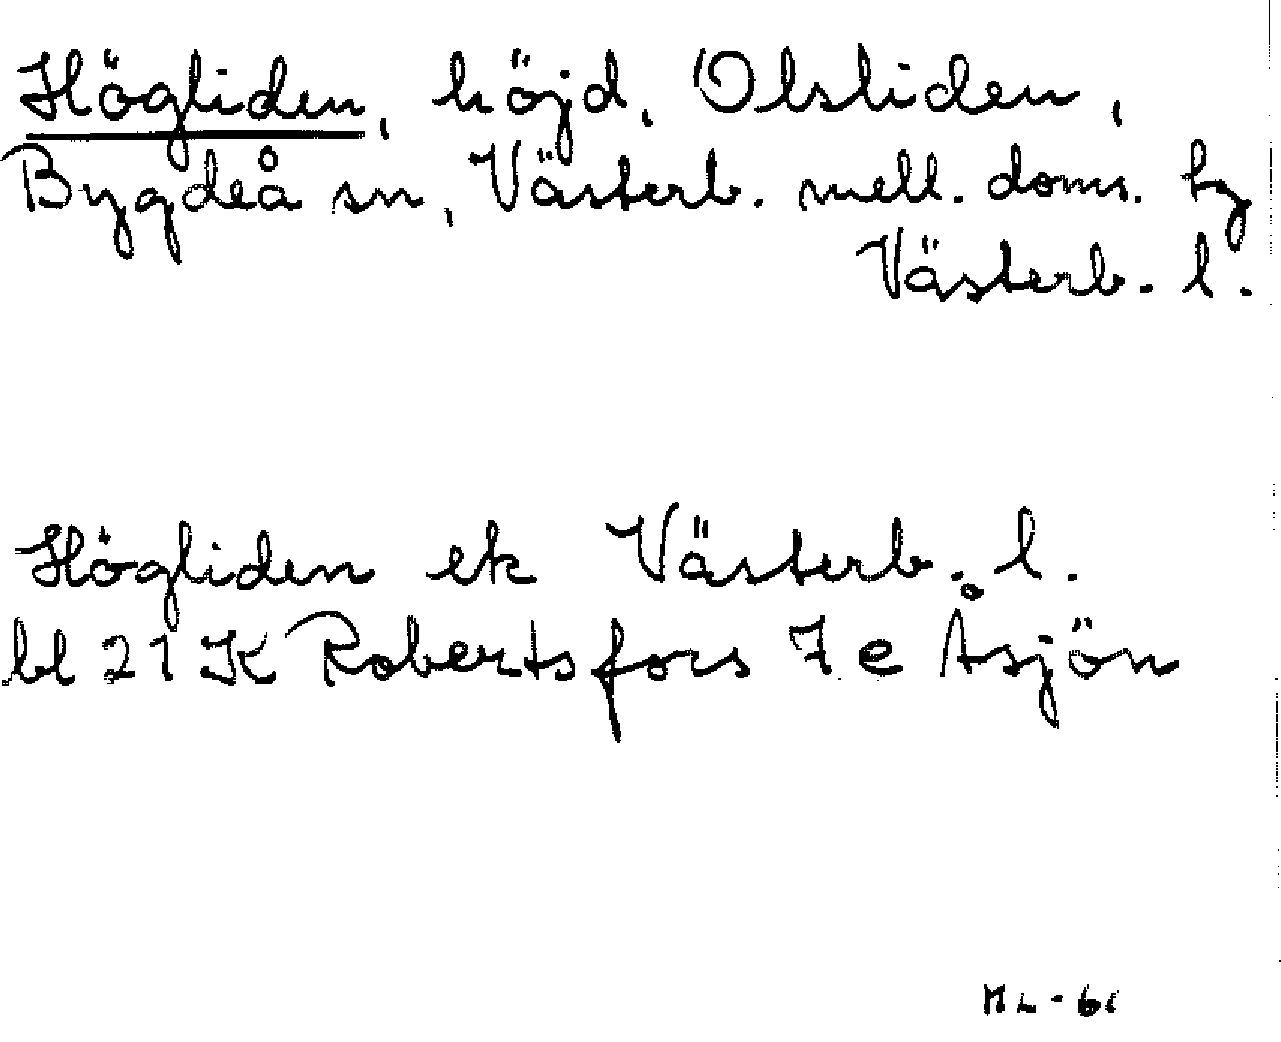 Högliden, höjd, Olsliden,
Bygdeå sn, Västerb. mell. doms. hg
Västerb. l.
Högliden ek Västerb. l.
bl 21 K Robertsfors 7 e Åsjön